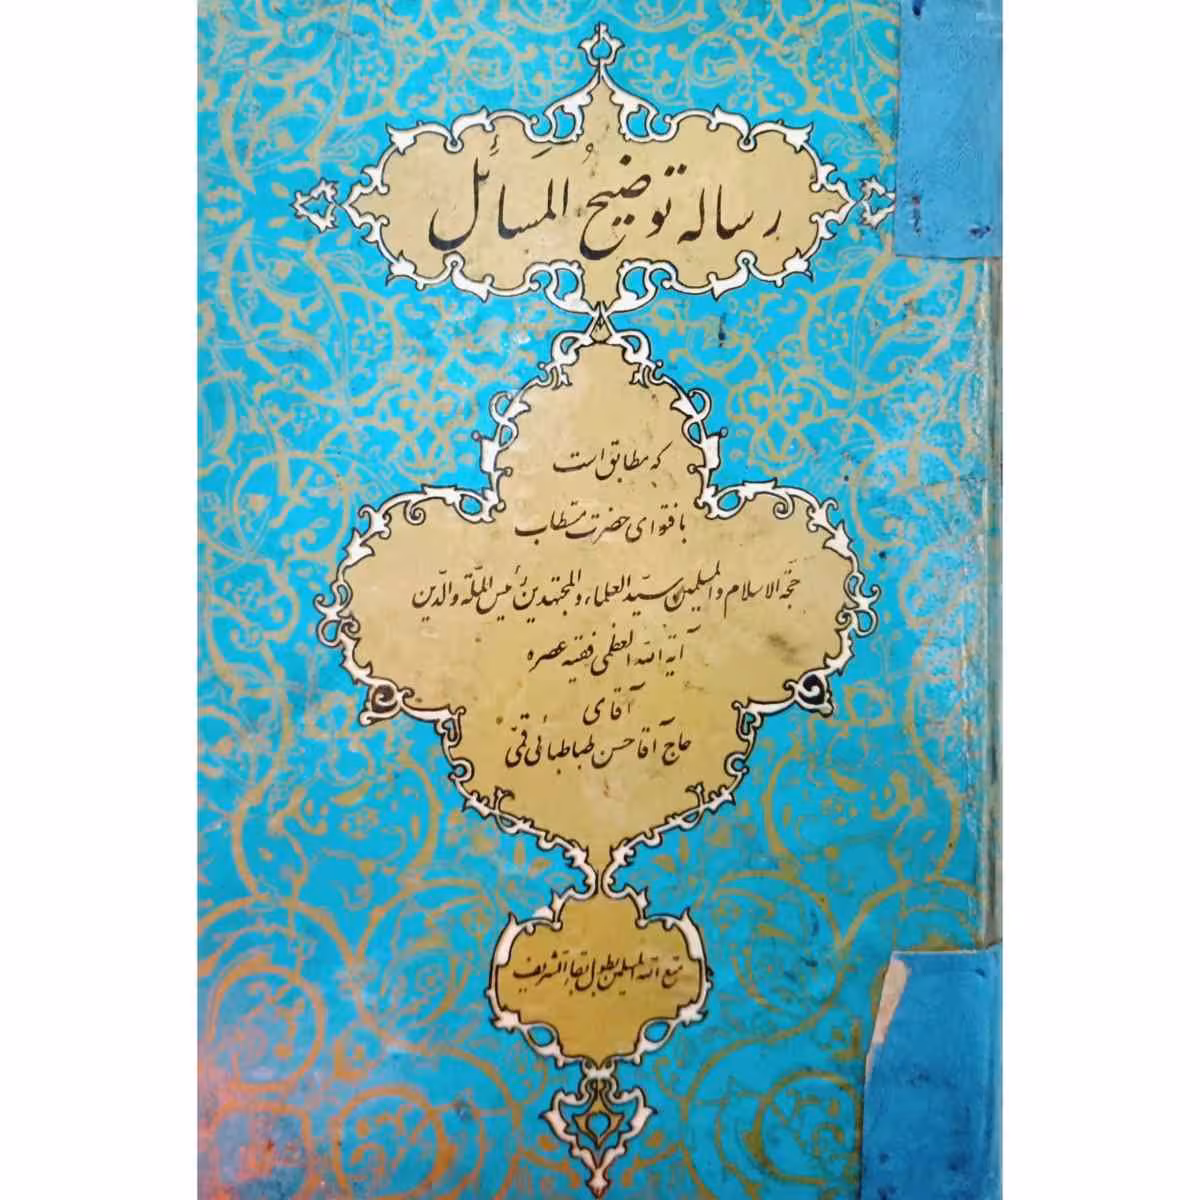 رسالهٔ توضیحُ المَسَائِل
که مطابق است
با فتوای حضرت مستطاب
حجّة الاسلام والمسلمین سیّد العلماء والمجتهدین رئیس الملّة والدّین
آیة الله العظمی فقیه عصره
آقای
حاج آقا حسن طباطبائی قمّی
متع الله المسلمین بطول بقاء الشریف